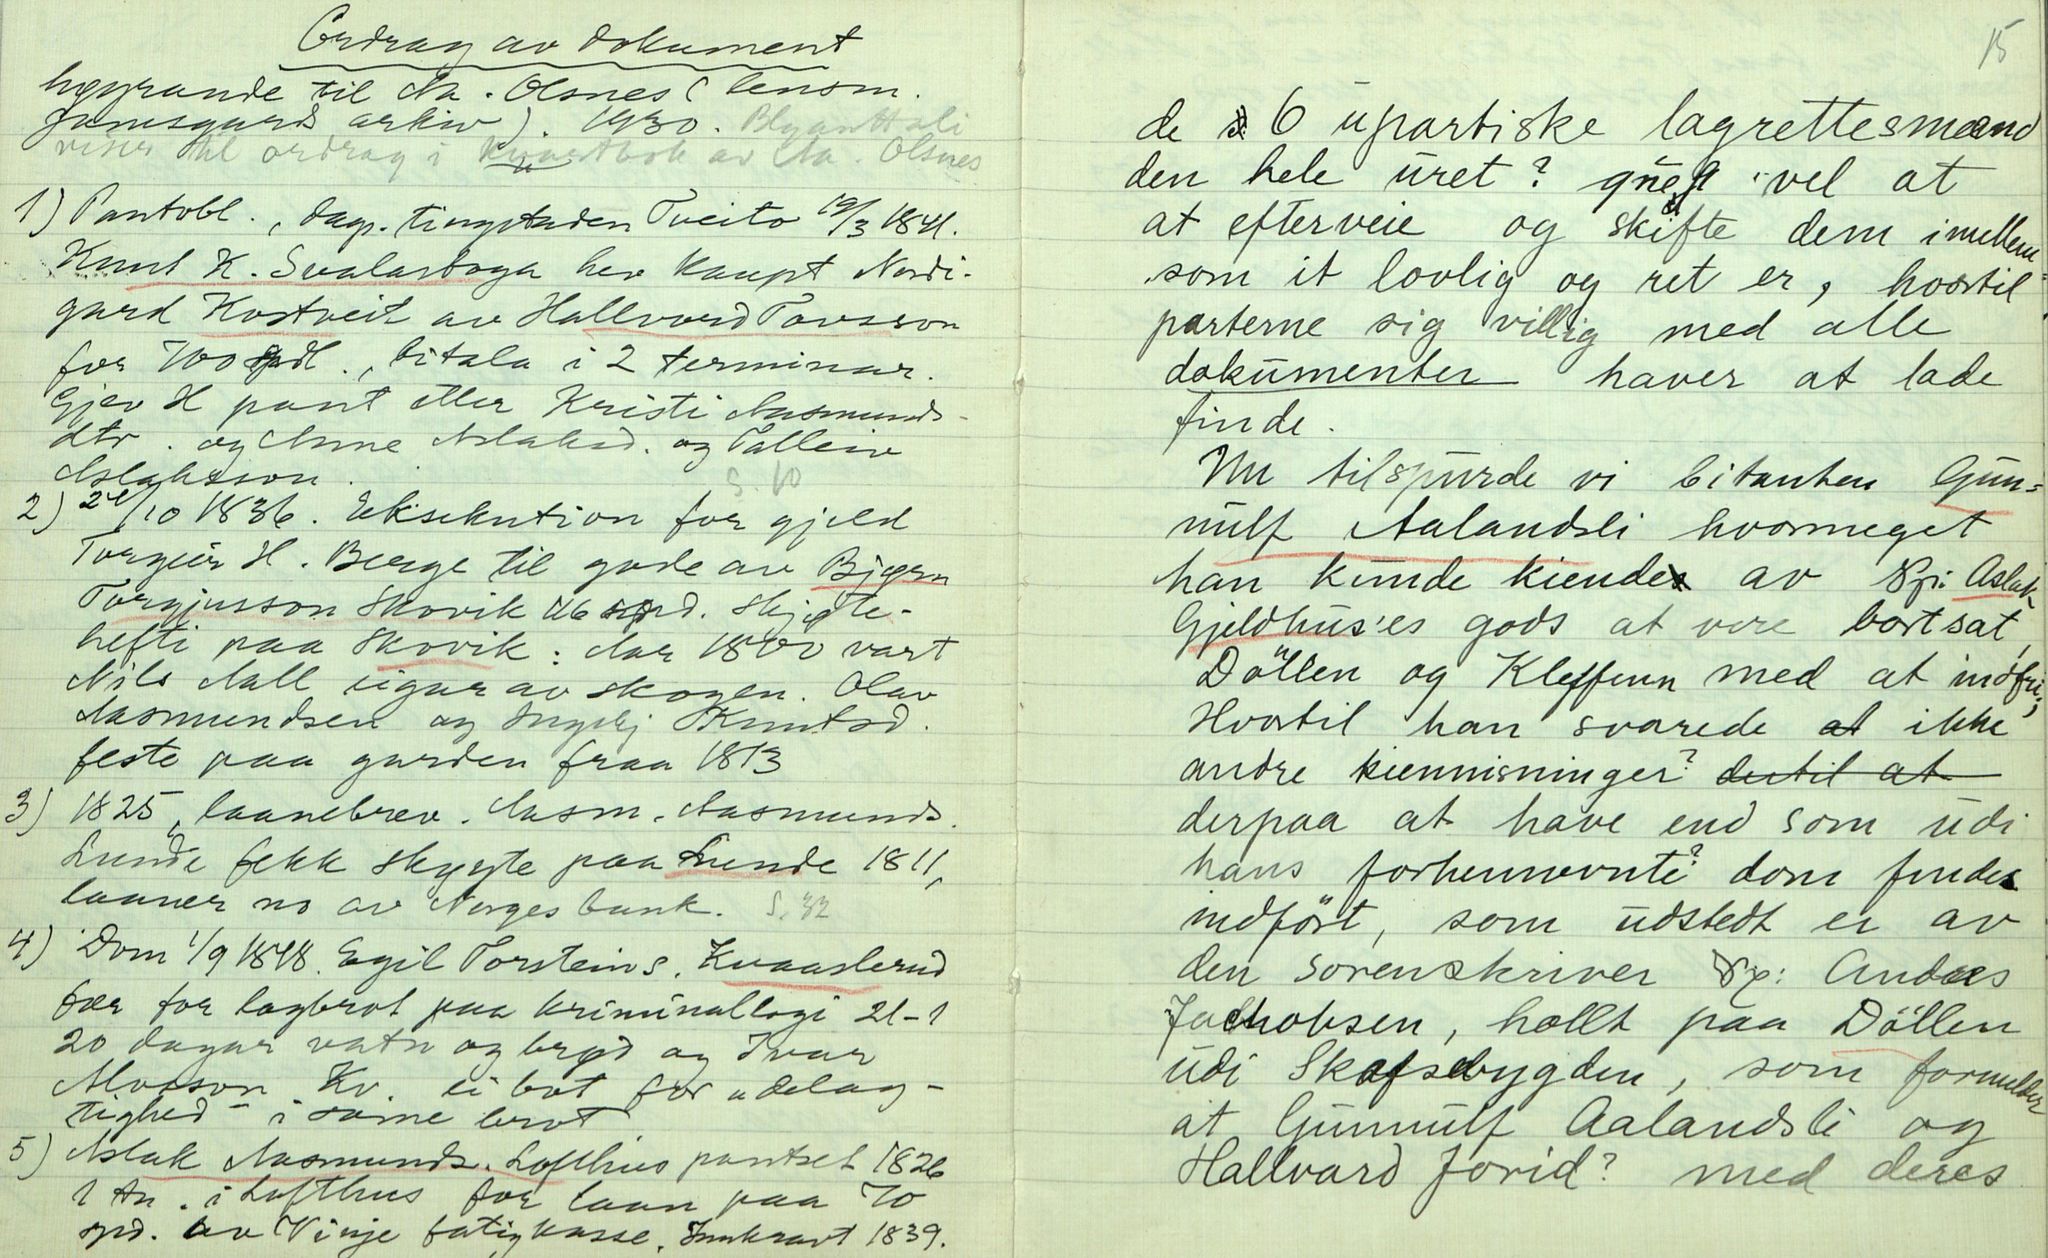 Ordrag av dokument
høyrande til Aa. Olsnes (lensm.
Jamsgards arkiv). 1930. Blyanttali
viser til ordrag i kvartbok av Aa. Olsnes
1) Pantobl., dag. tingstaden Tveito 19/3 1841.
Knut K. Svalastoga hev kaupt Nordi-
gard Kostveit av Hallvord Tovsson
for 700 spdl., bitala i 2 terminar.
Gjev H pant etter Kristi Aasmunds-
dtr. og Anne Aslaksd. og Talleiv
Aslaksson.
S. 10
2) /10 1836. Eksekution for gjeld
Torgeir H. Berge til gode av Bjørn
Torgjusson Skovik 46 spd. Skjøte-
hefti paa Skovik: Aar 1800 vart
Nils Aall eigar av skogen. Olav
Aasmundsen og Ingebj Knutsd.
feste paa garden fraa 1813
3) 1825, laanebrev. Aasm. Aasmunds.
Lunde fekk skøyte paa Lunde 1811,
laaner no av Norges bank. S. 32
4) Dom 1/9 1848. Egil Torsteins. Kvaaslerud
fær for lagbrot paa kriminallogi 21-1
20 dagar vatn og brød og Ivar
Alvsson Kv. ei bot for "delag-
tighed" i same brot
5) Aslak Aasmunds. Lofthus pantset 1826
1 An. i Lofthus for laan paa 70
spd. av Vinje fatigkasse. Innkravt 1839.
15
de 6 upartiske lagrettesmænd
den hele uret? vel at
at efterveie og skifte dem imellem
som it lovlig og ret er, hvortil
parterne sig villig med alle
dokumenter haver at lade
finde.
Nu tilspurde vi citanten Gun=
nulf Aalandsli hvormeget
han kunde kiende av Sp: Aslak
Gjeldhus'es gods at vere bortsat,
Döllen og Kleffenn med at indfri,
Hvortil han svarede at ikke
andre kiennisninger? dertil at
derpaa at have end som udi
hans forhennevnte? dom findes
indført, som udstedt er av
den sorenskriver Sp: Andes
Jachobsen, hollt paa Döllen
udi Skafsebygden, som formelder
at Gunnulf Aalandsli og
Hallvard Jorid? med deres